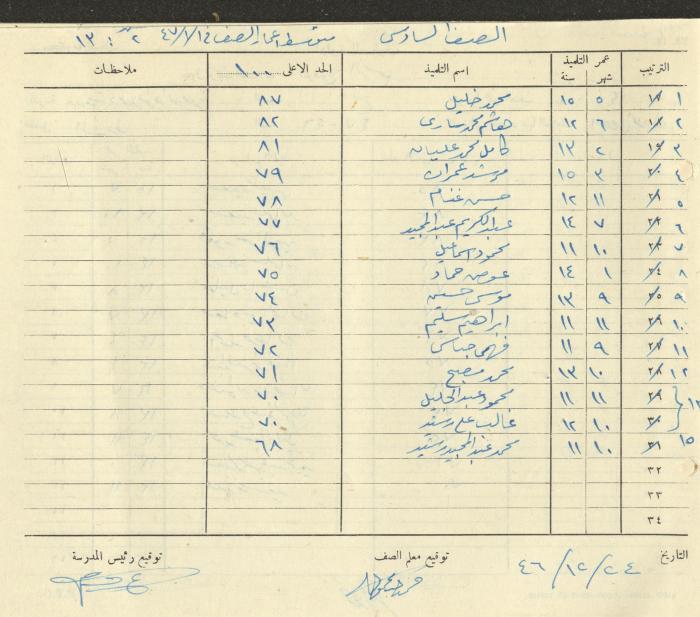 الصف السادس متوسط اعمار الصف في ٤٧/١/١ ٢ : ١٣
الترتيب عمر التلميذ شهر سنة اسم التلميذ الحد الاعلى ١٠٠ ملاحظات
١ ٥ ١٥ محمد خليل ٨٧
٢ ٦ ١٢ هاشم محمد ساري ٨٢
٣ ٢ ١٣ كامل محمد عليان ٨١
٤ ٣ ١٥ مرشد عمران ٧٩
٥ ١١ ١٢ حسن غنام ٧٨
٦ ٧ ١٤ عبد الكريم عبد المجيد ٧٧
٧ ١٠ ١١ محمود اسماعيل ٧٦
٨ ١ ١٤ عوض حماد ٧٥
٩ ٩ ١٣ موسى حسين ٧٤
١٠ ١١ ١١ ابراهيم سليم ٧٣
١١ ٩ ١١ فهمي ٧٢
١٢ ١٠ ١٣ محمد مصبح ٧١
١٣ ١١ ١١ محمود عبد الجليل ٧٠
١٠ ١٢ غالب علي رشيد ٧٠
١٥ ١٠ ١١ محمد عبد المجيد رشيد ٦٨
٣٢
٣٣
٣٤
التاريخ ٤٦/١٢/٢٤ توقيع معلم الصف توقيع رئيس المدرسة